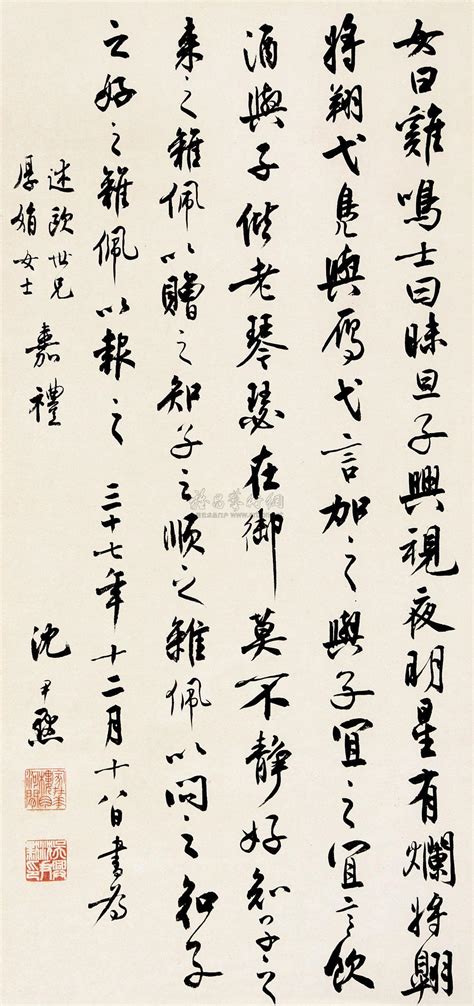 女曰雞鳴士曰昧旦子興視夜明星有爛將翱
將翔弋鳧與雁弋言加之與子宜之宜言飲
酒與子偕老琴瑟在御莫不靜好知子之
來之雜佩以贈之知子之順之雜佩以問之知子
之好之雜佩以報之 三十七年十二月十八日書為
述歐世兄
厚娟女士
嘉禮
沈尹默